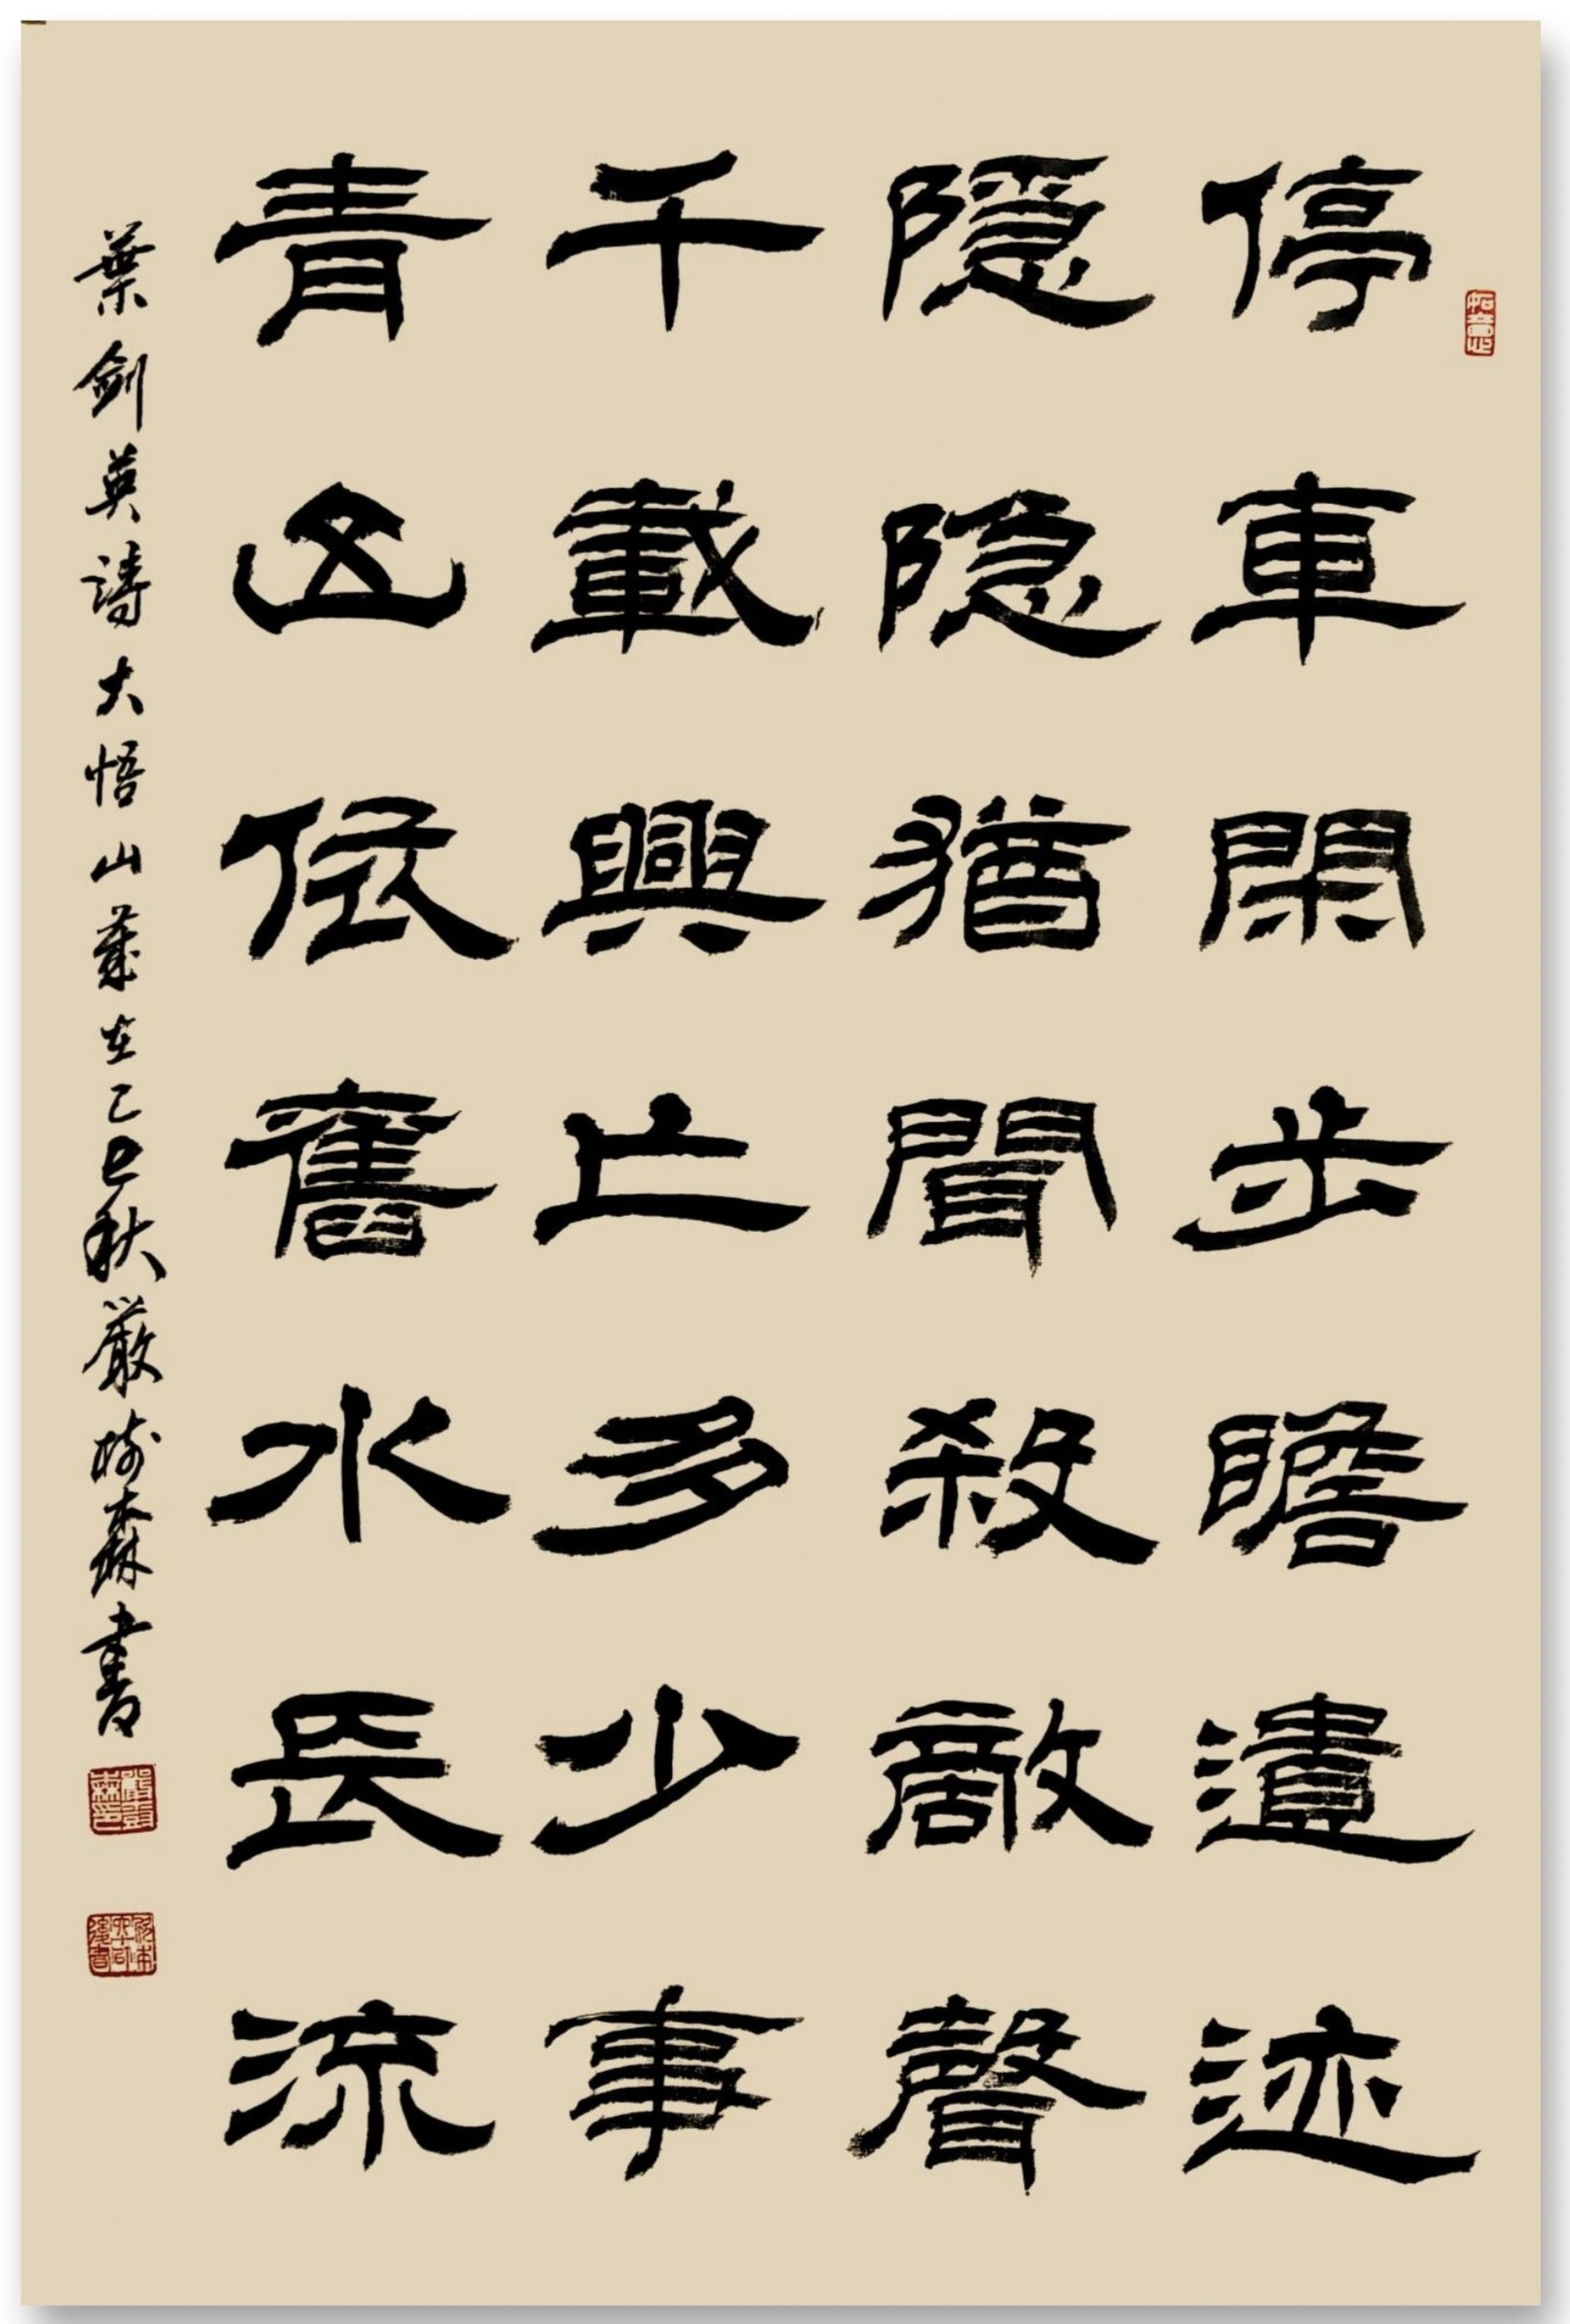 停車閑步瞻遺迹
隱隐猶聞殺敵聲
千載興亡多少事
青山依舊水長流
葉剑英詩大悟山歲在乙巳秋嚴樹森書